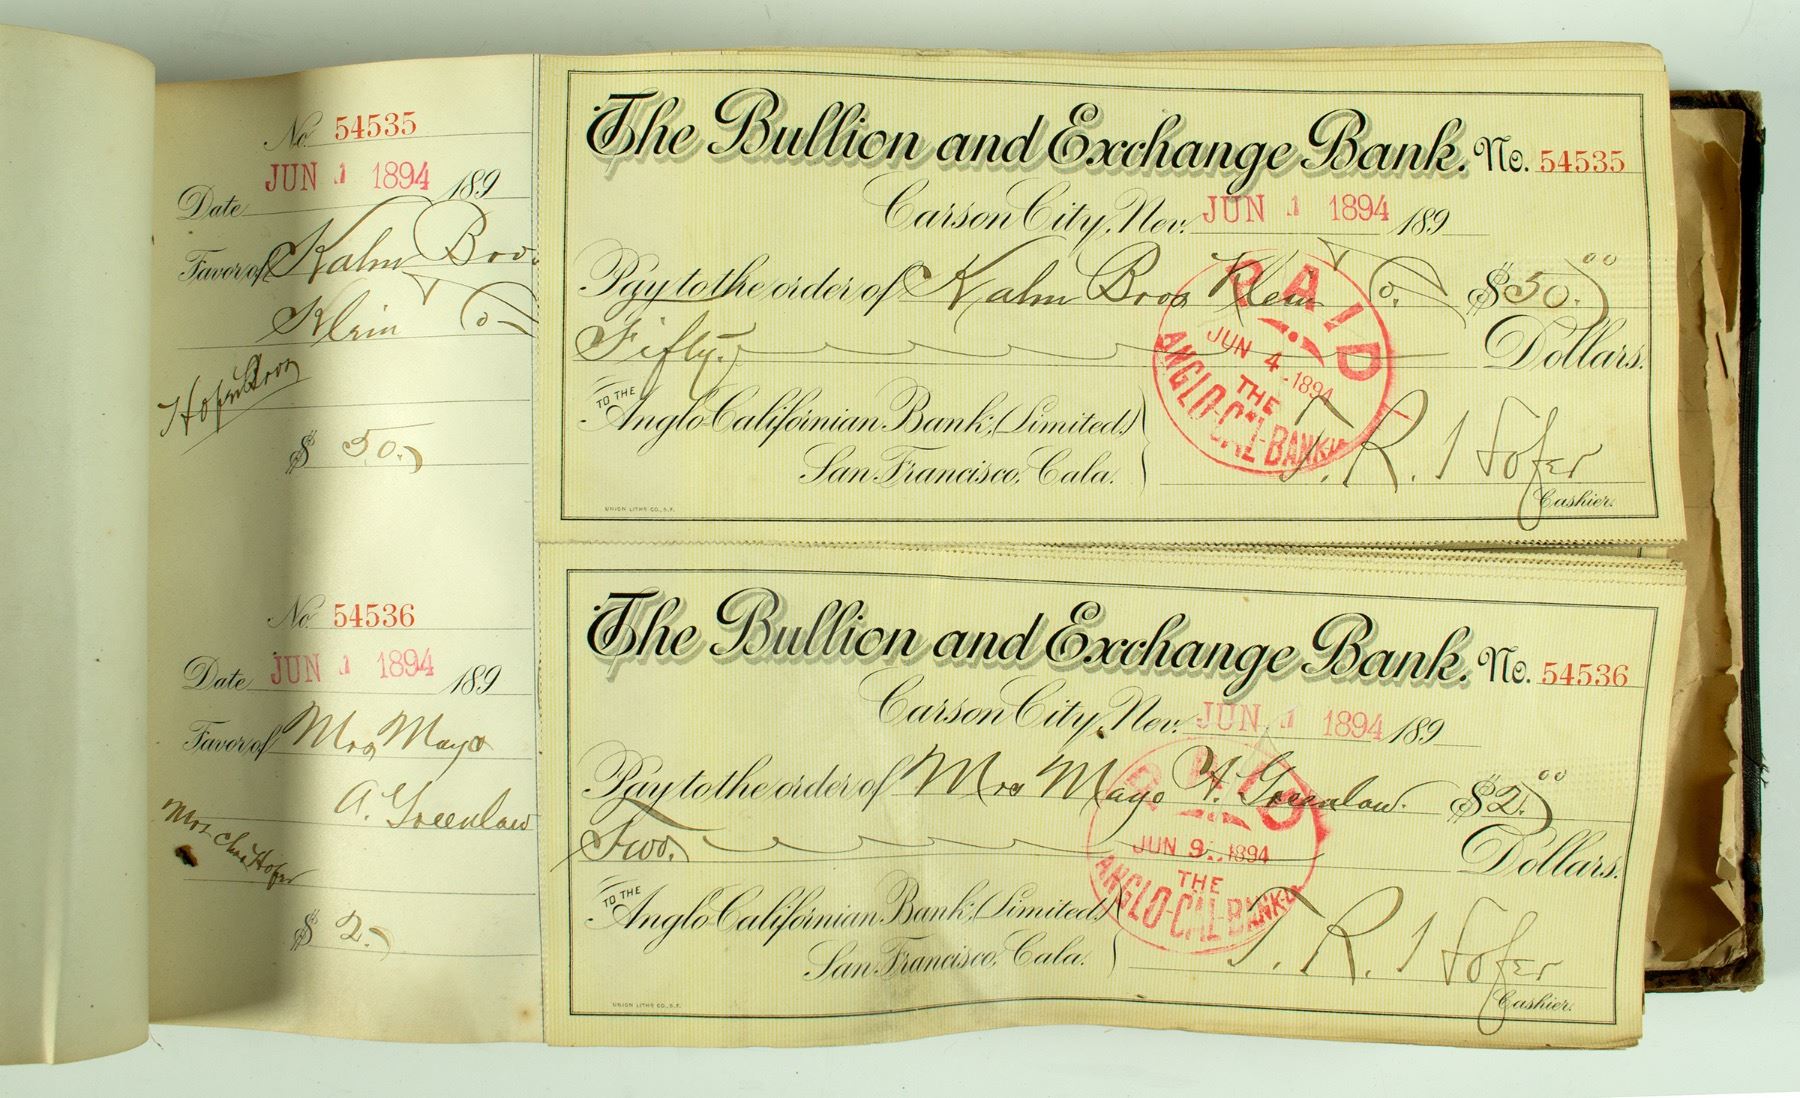 No. 54535
JUN 1 1894 189
Date
Favor of Kalm Bro.
Klein Co.
Hofer Bros
$ 50.
No. 54536
Date JUN 1 1894 189
Favor of Mrs Mayo
A. Greenlaw
Mrs Chas Hofer
$ 2.
The Bullion and Exchange Bank. No. 54535
Carson City, Nev. JUN 1 1894 189
Pay to the order of Kalm Bros Klein Co. $50.00
Fifty Dollars.
TO THE
Anglo-Californian Bank, (Limited)
San Francisco, Cala.
T. R. Hofer
Cashier.
UNION LITHO CO., S.F.
PAID
JUN 4 1894
THE
ANGLO-CAL-BANK-LD
The Bullion and Exchange Bank. No. 54536
Carson City, Nev. JUN 1 1894 189
Pay to the order of Mrs Mayo A. Greenlaw. $2.00
Two. Dollars.
TO THE
Anglo-Californian Bank, (Limited)
San Francisco, Cala.
T. R. Hofer
Cashier.
UNION LITHO CO., S.F.
PAID
JUN 9 1894
THE
ANGLO-CAL-BANK-LD